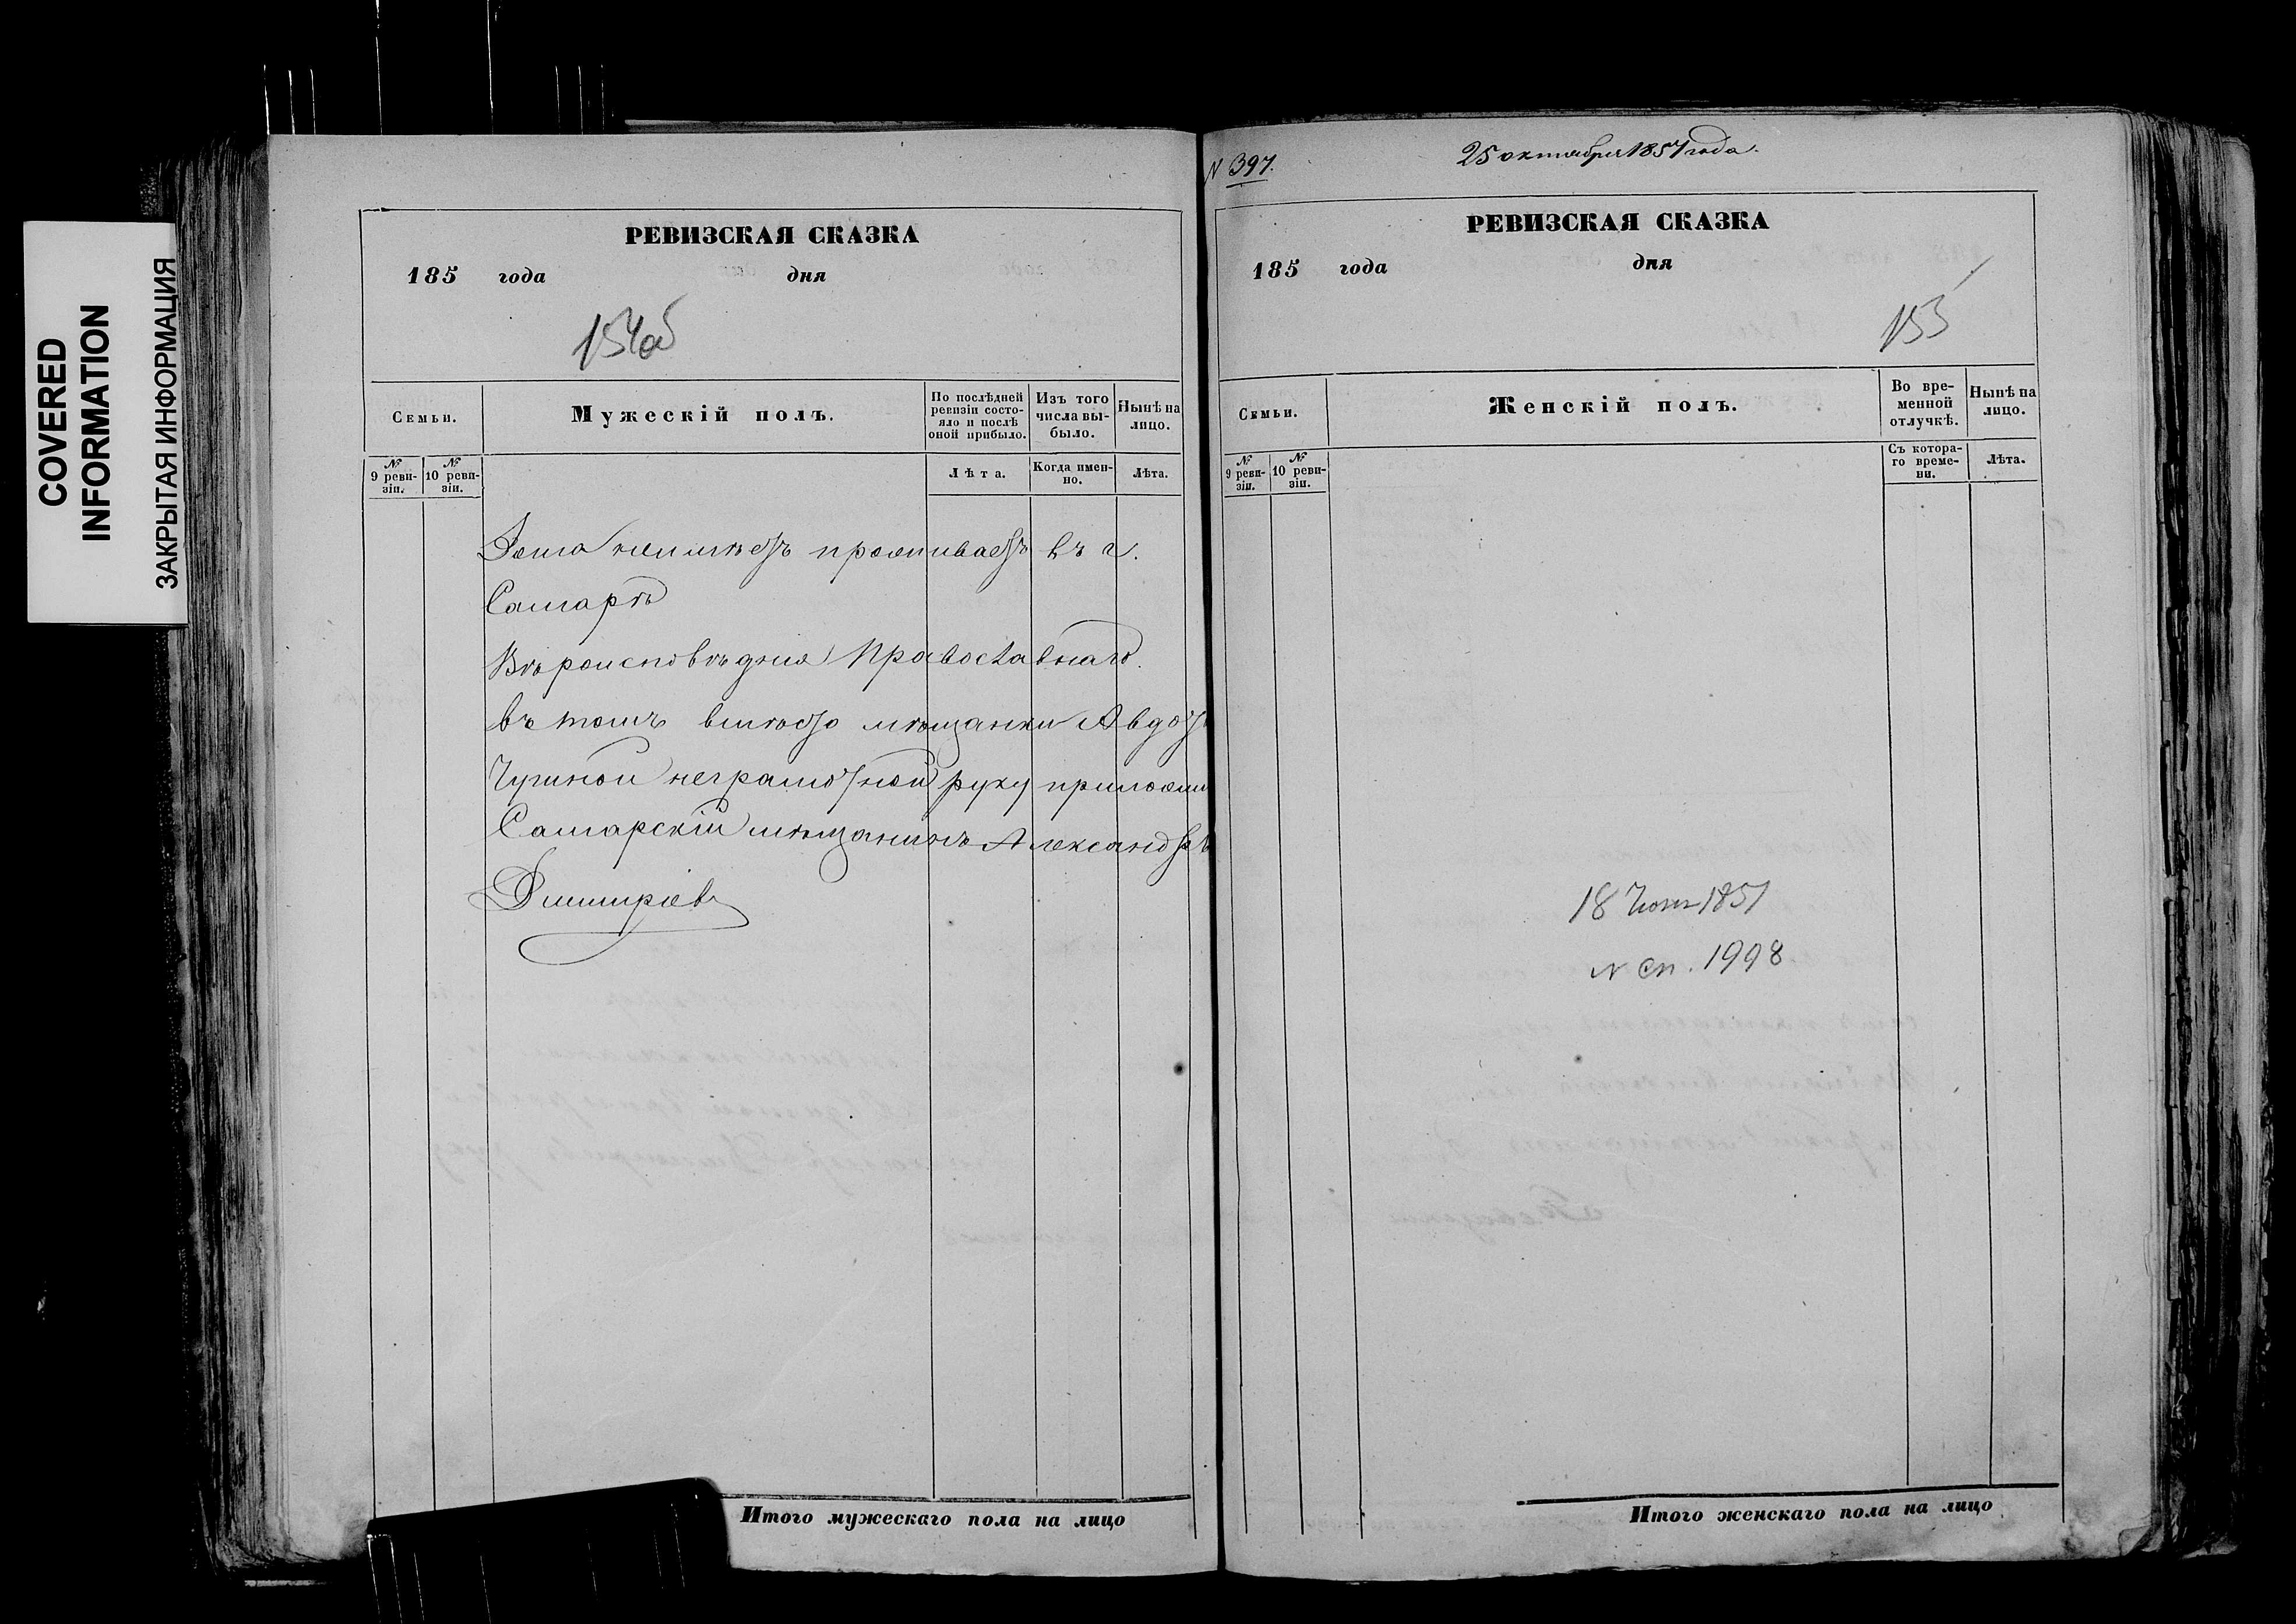 COVERED
INFORMATION
ЗАКРЫТАЯ ИНФОРМАЦИЯ
РЕВИЗСКАЯ СКАЗКА
185 года дня
154об
Семьи.
Мужескій полъ.
По послѣдней ревизіи состояло и послѣ оной прибыло.
Изъ того числа выбыло.
Нынѣ на лицо.
№ 9 ревизіи.
№ 10 ревизіи.
Лѣта.
Когда именно.
Лѣта.
Дома неимѣетъ проживаетъ въ г.
Самарѣ
Вѣроисповѣдния Православнаго.
въ томъ вмѣсто мѣщанки Авдоть
неграмотной руку приложи
Самарскій мѣщанинъ Александръ
Дмитріевъ
Итого мужескаго пола на лицо
N 397.
25 октября 1857 года.
РЕВИЗСКАЯ СКАЗКА
185 года дня
155
Семьи.
Женскій полъ.
Во временной отлучкѣ.
Нынѣ на лицо.
№ 9 ревизіи.
№ 10 ревизіи.
Съ котораго времени.
Лѣта.
18 Июня 1851
N сп. 1998
Итого женскаго пола на лицо